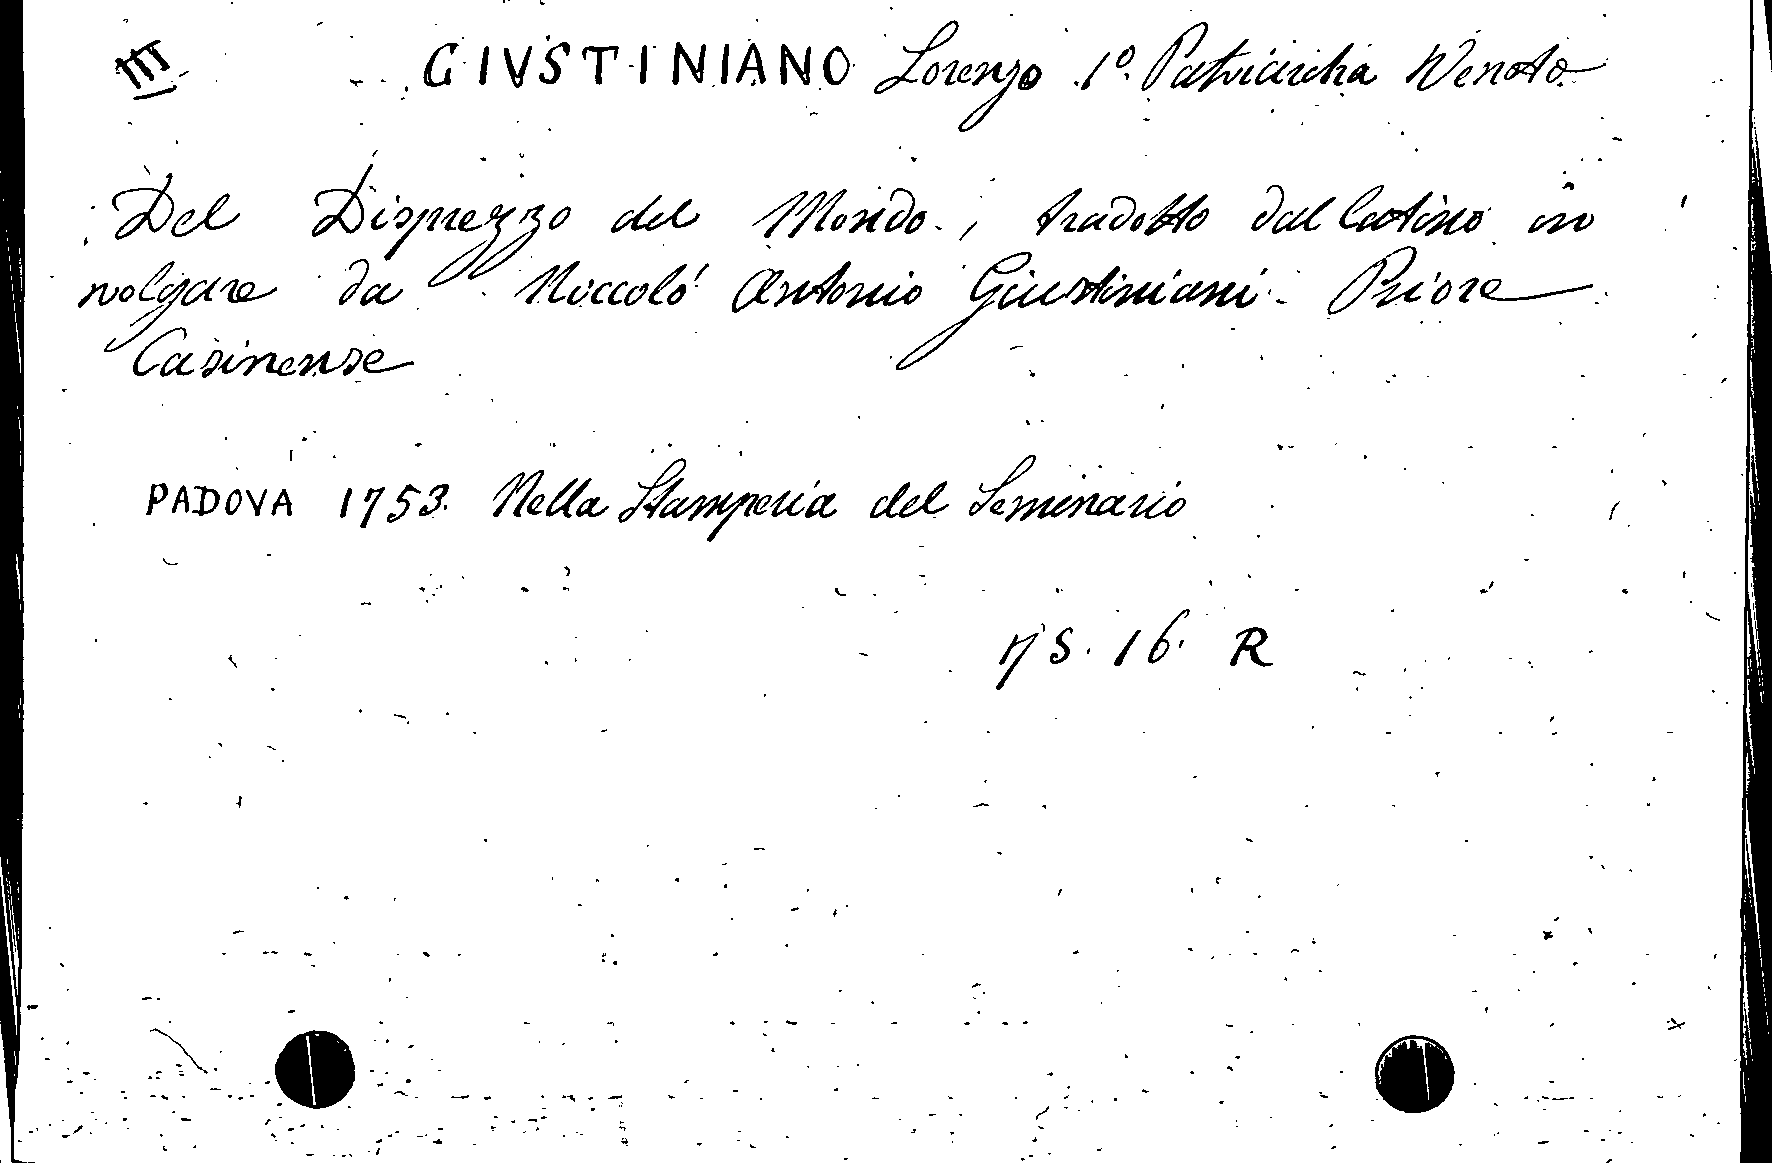 III
GIVSTINIANO Lorenzo 1º. Patriarcha Veneto
Del Disprezzo del Mondo, tradotto dal latino in
volgare da Niccoló Antonio Giustiniani Priore
Casinense
PADOVA 1753. Nella Stamperia del Seminario
R